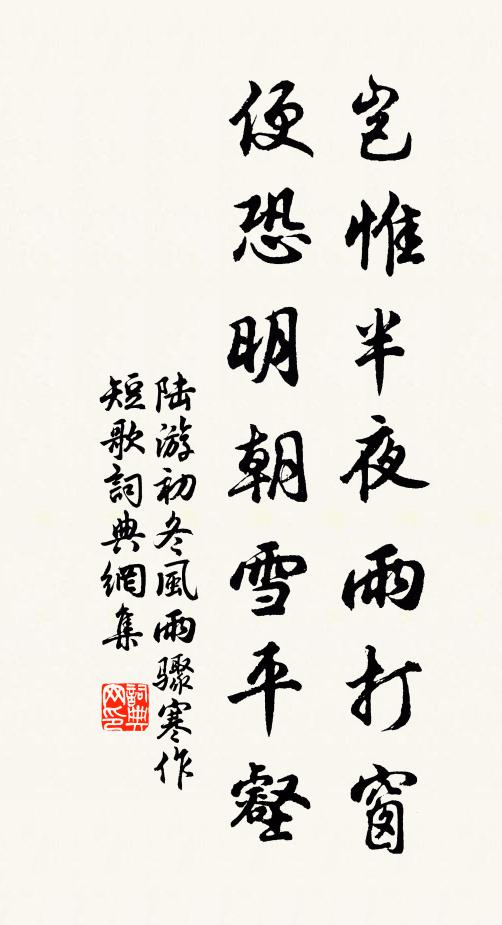 岂惟半夜雨打窗
便恐明朝雪平壑
陆游初冬風雨驟寒作
短歌詞典網集
詞典网印